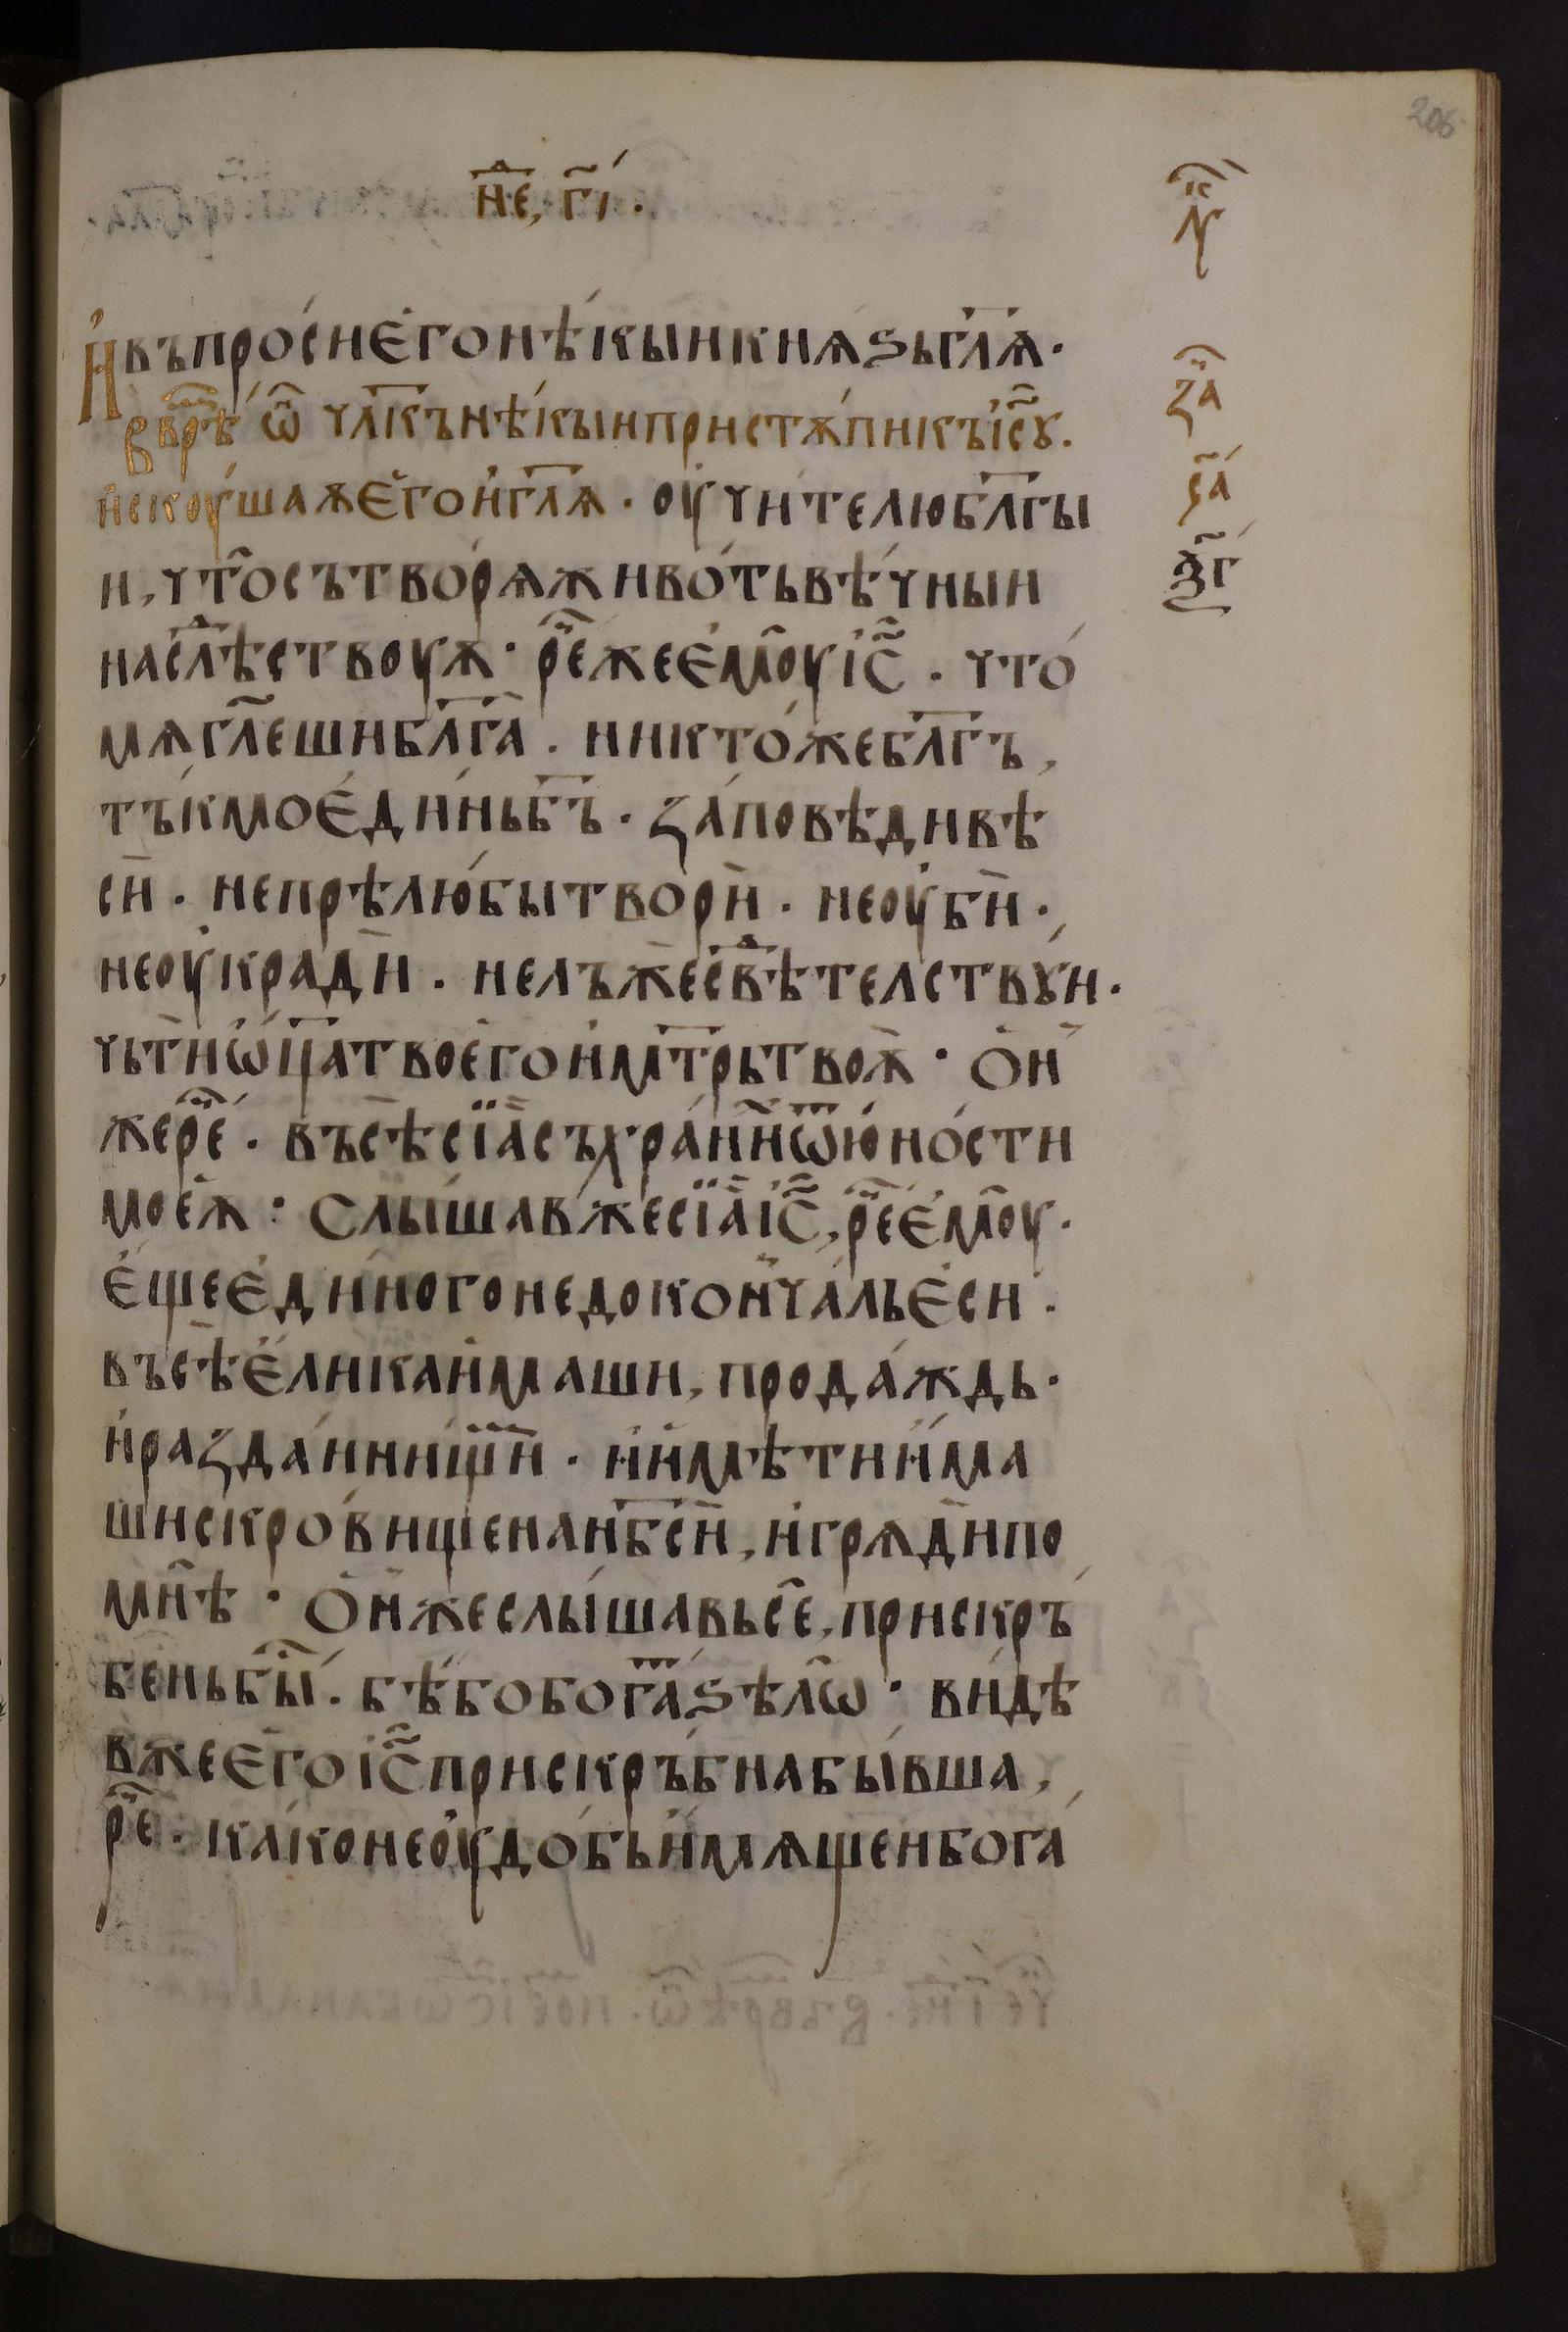 н҃е, г҃і ·
Й въпро́си е҆го нѣ́кыи кнѧѕь гл҃ѧ ·
В врⷨѣ ѡ҆҃ чл҃къ нѣ́кыи пристѫ́пи къ і҆с҃ꙋ ·
и҆скоу́шаѫ е҆го и҆ гл҃ѧ · оу҆чи́телю бл҃гы
и, что̑ сътво́рѧ живо́ть вѣ́чныи
наслⷣѣствоуѫ · реⷱ҇ же е҆моу̑ і҆с҃ · что́
мѧ гл҃еши бл҃га · никто́же бл҃гъ,
тъ́кмо е҆ди́нь б҃ъ · за́повѣди вѣ
си̑ · не прѣлю́бы твори̑ · не оу҆бі́и ·
не оу҆кради̑ · не лъже свⷣѣтелствꙋ́и ·
чьти̑ ѡ҆ц҃а твоего̀ и҆ мт҃рь твоѫ̀ · ѻ҆н
же реⷱ҇ · въсѣ̀ сїа̀ съхра́ни́ ѿ ю́ности
моеѫ̀ : Слы́шав же сїа̀ і҆с҃, реⷱ҇ е҆моу̑ ·
е҆ще е҆ди́ного не докон̾ча́ль е҆си ·
въсѣ̀ е҆лика и҆маши, прода́ждь ·
и҆ разда́и ни́щⷨи · и҆ и҆мѣти и҆ма
ши скро́вище на нб҃си̑, и҆ грѧди̑ по
мн̑ѣ · Ѻ҆н же слы́шавь се̑, прискръ́
бень бы́ · бѣ́ бо бога́ⷮ ѕѣлѡ̑ · ви́дѣ
в же е҆го̀ і҆с҃ прискръ́бна бы́вша,
реⷱ҇ · ка́ко не оу҆до́бь и҆мѧщеи бога́
к҃
н҃
за҃
са҃
ѯ҃г
206